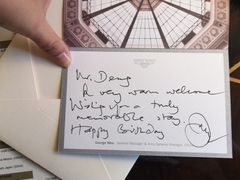 Mr. Dang
A very warm welcome
Wishing you a truly
memorable stay.
Happy Birthday
General Manager & Area General Manager,